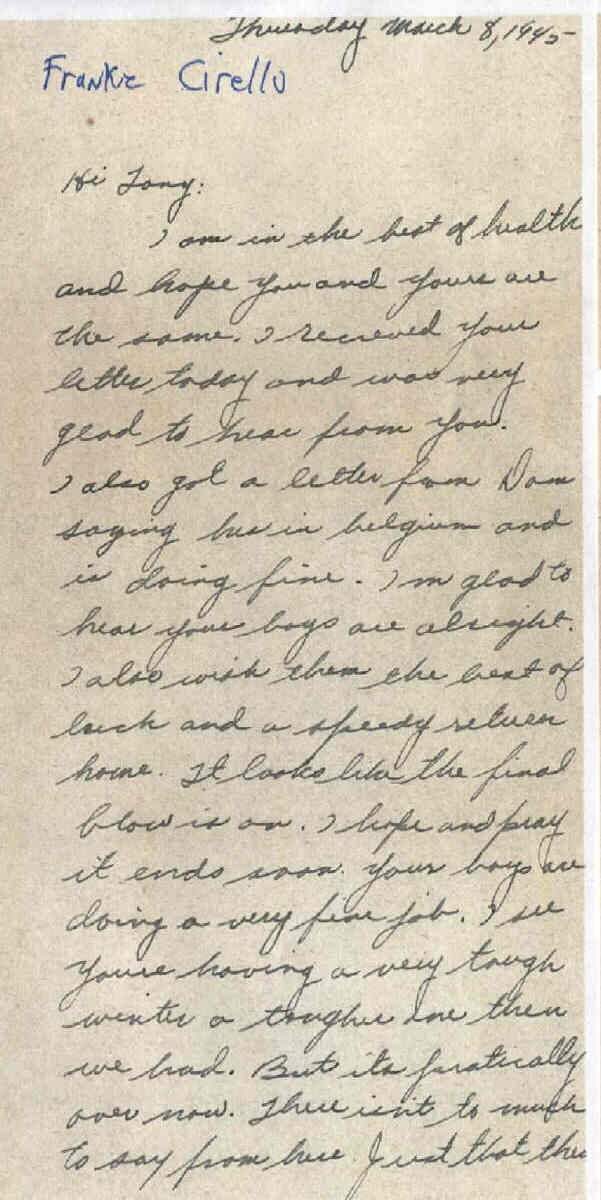 Thursday March 8, 1945
Frankie Cirello
Hi Tony:
I am in the best of health
and hope you and yours are
the same. I recieved your
letter today and was very
glad to hear from you.
I also got a letter from Dom
saying hes in belgium and
is doing fine. I'm glad to
hear your boys are alright.
I also wish them the best of
luck and a speedy return
home. It looks like the final
blow is on. I hope and pray
it ends soon. Your boys are
doing a very fine job. I see
youre having a very tough
winter a tougher one then
we had. But its pratically
over now. There isn't to much
to say from here. Just that